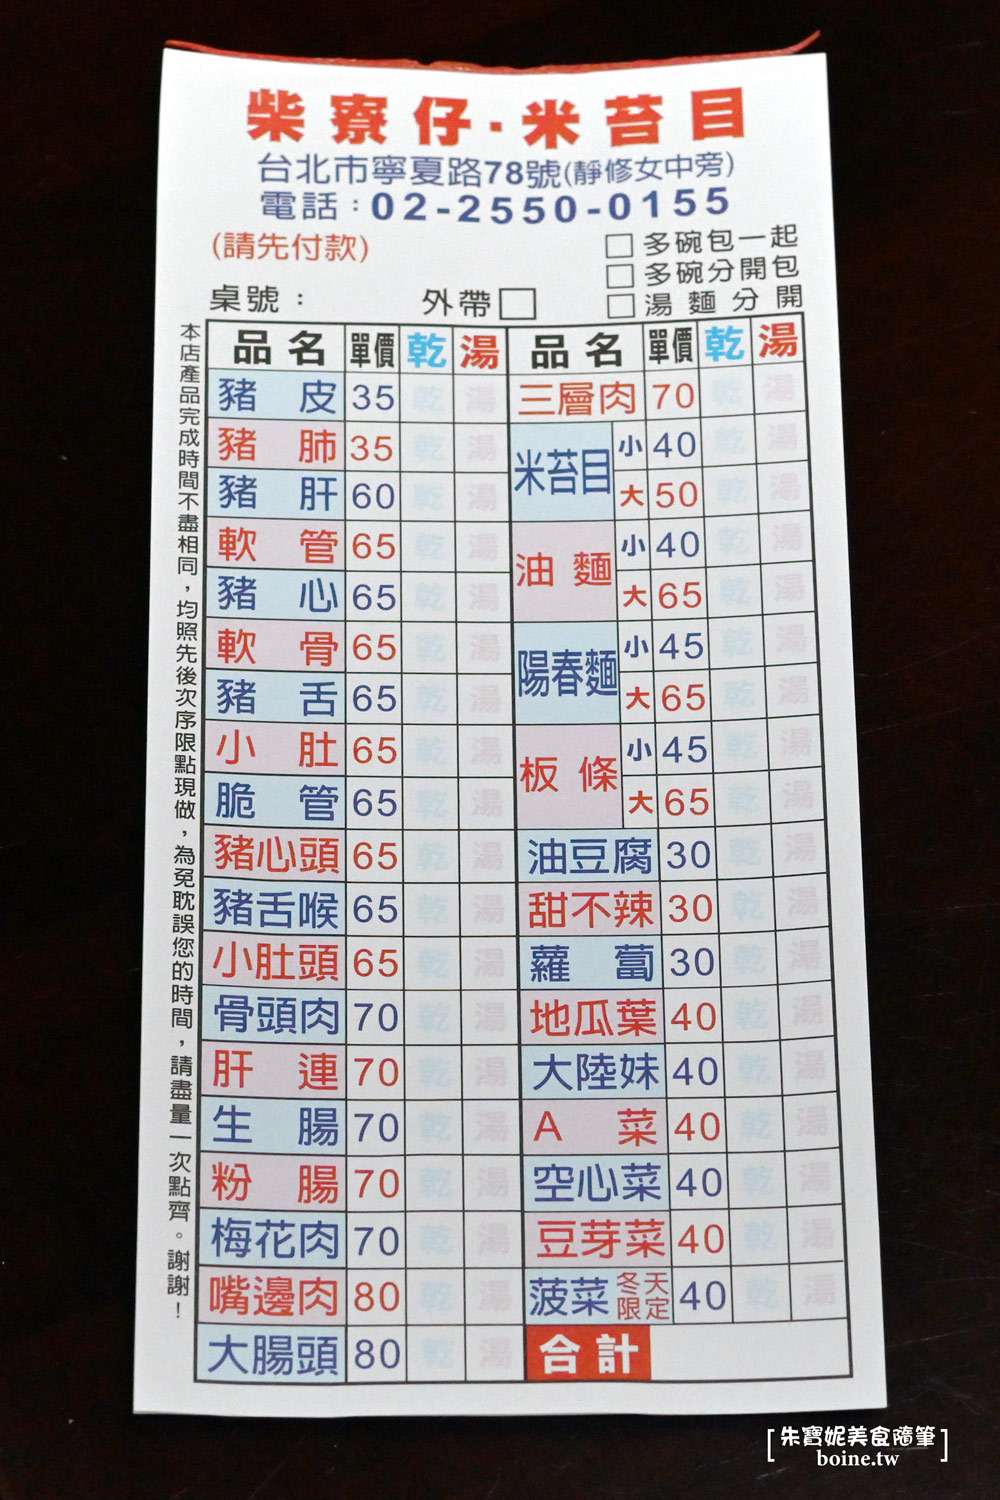 柴寮仔·米苔目
台北市寧夏路78號(靜修女中旁)
電話:02-2550-0155
(請先付款)
□多碗包一起
□多碗分開包
桌號: 外帶□ □湯麵分開
本店產品完成時間不盡相同,均照先後次序限點現做,為免耽誤您的時間,請盡量一次點齊。謝謝!
品名 單價 乾 湯 品名 單價 乾 湯
豬皮 35 乾 湯 三層肉 70 乾 湯
豬肺 35 乾 湯 米苔目 小 40 乾 湯
豬肝 60 乾 湯 大 50 乾 湯
軟管 65 乾 湯 油麵 小 40 乾 湯
豬心 65 乾 湯 大 65 乾 湯
軟骨 65 乾 湯 陽春麵 小 45 乾 湯
豬舌 65 乾 湯 大 65 乾 湯
小肚 65 乾 湯 板條 小 45 乾 湯
脆管 65 乾 湯 大 65 乾 湯
豬心頭 65 乾 湯 油豆腐 30 乾 湯
豬舌喉 65 乾 湯 甜不辣 30 乾 湯
小肚頭 65 乾 湯 蘿蔔 30 乾 湯
骨頭肉 70 乾 湯 地瓜葉 40 乾 湯
肝連 70 乾 湯 大陸妹 40 乾 湯
生腸 70 乾 湯 A菜 40 乾 湯
粉腸 70 乾 湯 空心菜 40 乾 湯
梅花肉 70 乾 湯 豆芽菜 40 乾 湯
嘴邊肉 80 乾 湯 菠菜 冬天限定 40 乾 湯
大腸頭 80 乾 湯 合計
[朱寶妮美食隨筆]
boine.tw